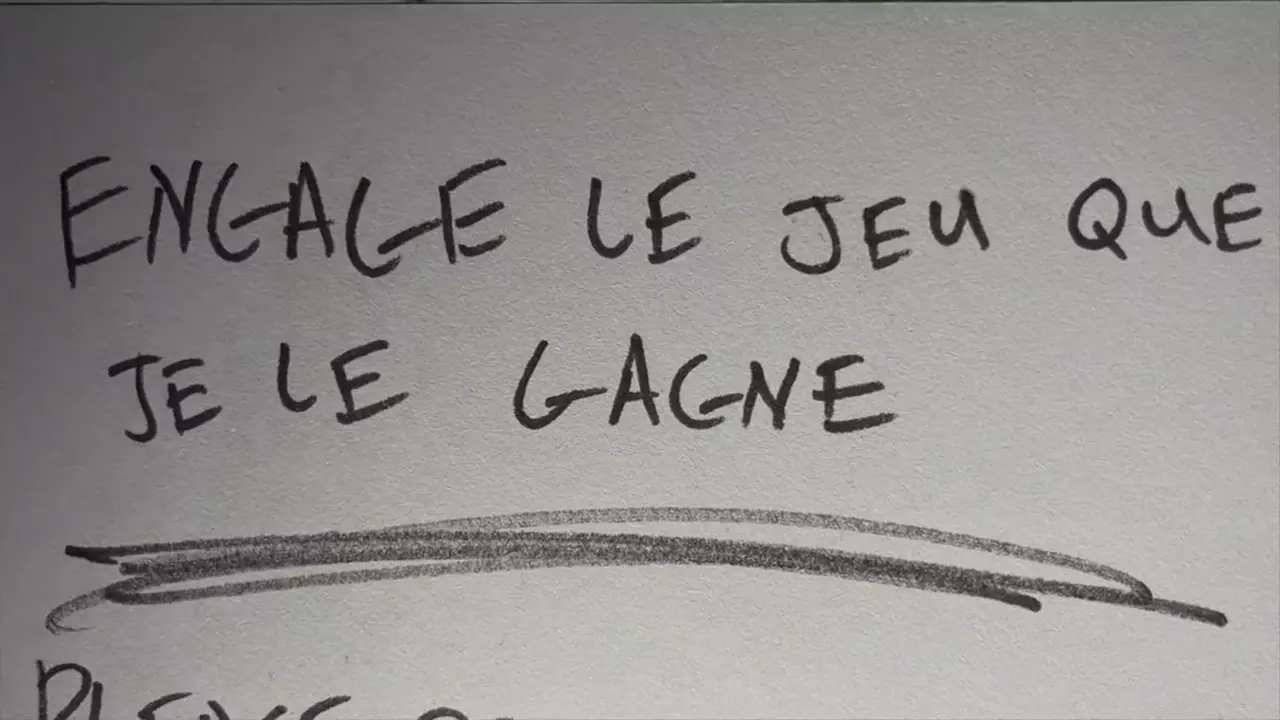 ENGAGE LE JEU QUE
JE LE GAGNE